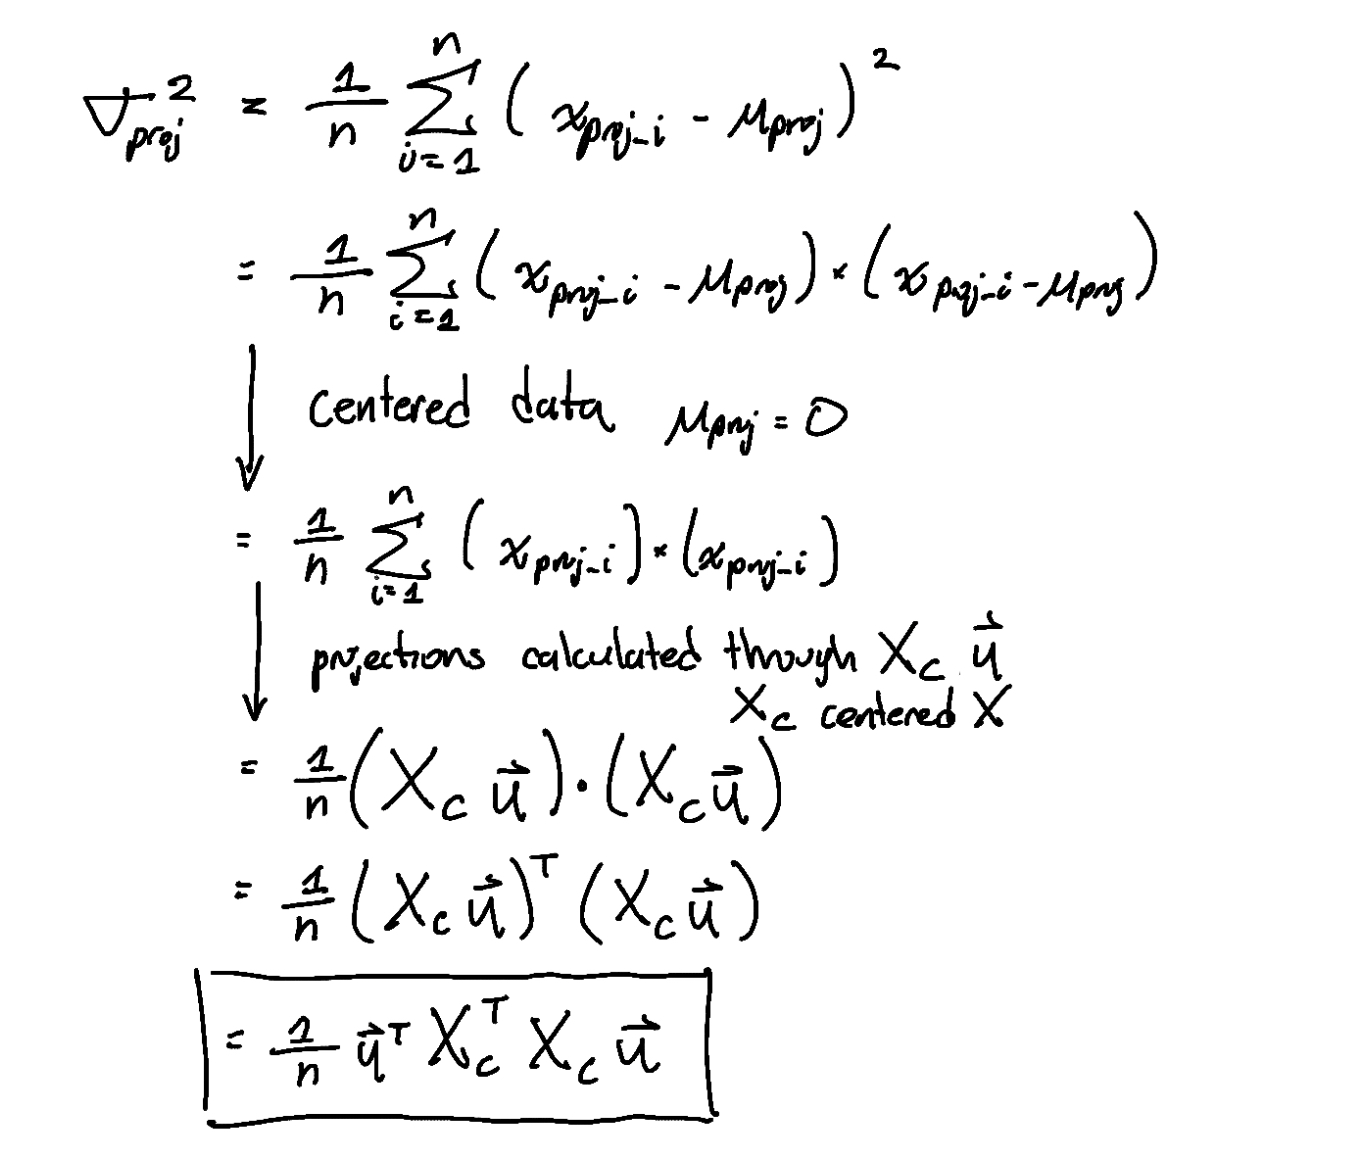 σ²_proj = 1/n Σ_{i=1}^{n} ( x_{proj-i} - μ_{proj} )²
= 1/n Σ_{i=1}^{n} ( x_{proj-i} - μ_{proj} ) × ( x_{proj-i} - μ_{proj} )
↓ centered data μ_{proj} = 0
= 1/n Σ_{i=1}^{n} ( x_{proj-i} ) × ( x_{proj-i} )
↓ projections calculated through X_c u⃗
X_c centered X
= 1/n ( X_c u⃗ ) · ( X_c u⃗ )
= 1/n ( X_c u⃗ )ᵀ ( X_c u⃗ )
= 1/n u⃗ᵀ X_cᵀ X_c u⃗